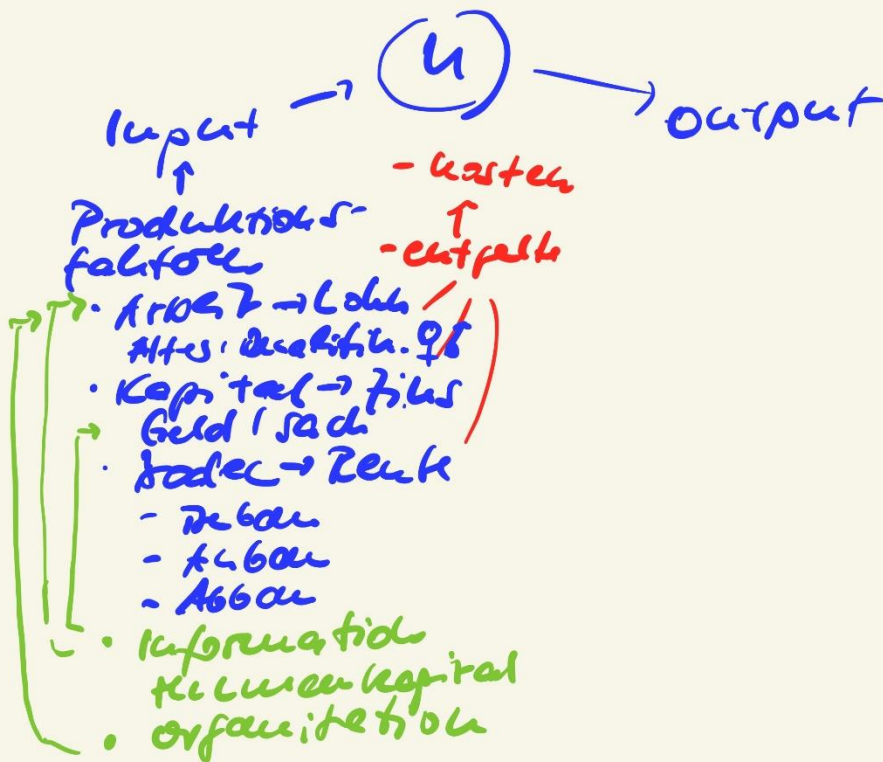 U
Input → → Output
- Kosten
↑ ↑
Produktions-
faktoren
- entgelte
• Arbeit → Lohn
Alter, Qualifik. ♀♂
• Kapital → Zins
Geld / Sach
• Boden → Rente
- Bebau
- Anbau
- Abbau
• Information
Humankapital
• Organisation